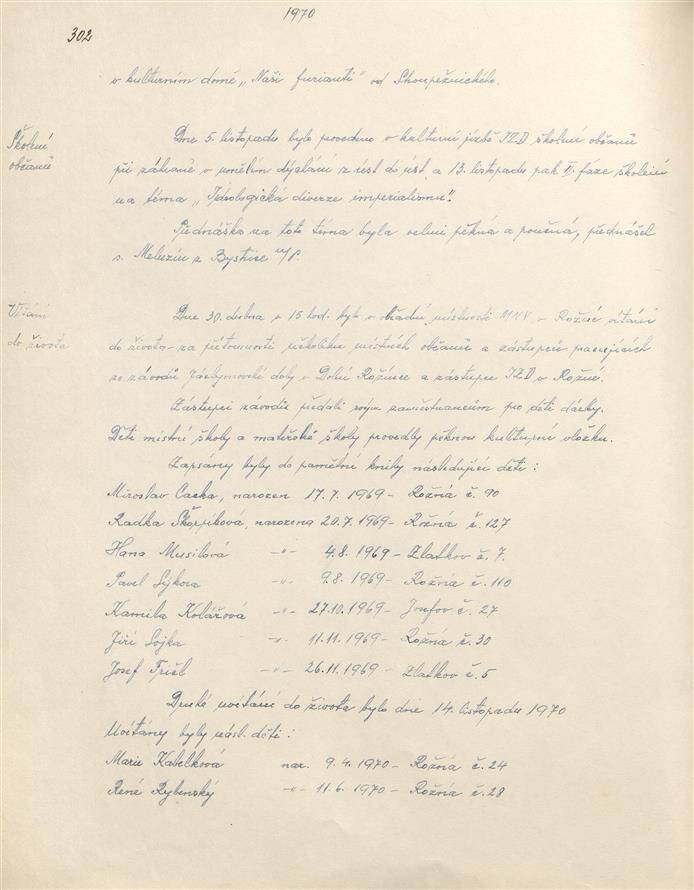 1970
302
v kulturním domě „Naši furianti" od Stroupežnického.
Školení
občanů
Dne 5. listopadu bylo provedeno v kulturní jizbě JZD školení občanů
při záchraně v umělém dýchání z úst do úst a 13. listopadu pak II. fáze školení
na téma „Ideologická diverze imperialismu".
Přednáška na toto téma byla velmi pěkná a poučná, přednášel
s. Meluzín z Bystřice n/P.
Vítání
do života
Dne 30. dubna v 15 hod. bylo v obřadní místnosti MNV v Rožné vítání
do života - za přítomnosti několika místních občanů a zástupců pracujících
ze závodů Jáchymovské doly v Dolní Rožínce a zástupce JZD v Rožné.
Zástupci závodů předali svým zaměstnancům pro děti dárky.
Děti místní školy a mateřské školy provedly pěknou kulturní vložku.
Zapsány byly do pamětní knihy následující děti:
Miroslav Cacka, narozen 17.7. 1969 - Rožná č. 90
Radka Skřipková, narozena 20.7. 1969 - Rožná č. 127
Hana Musilová -"- 4.8. 1969 - Zlatkov č. 7.
Pavel Sýkora -"- 9.8. 1969 - Rožná č. 110
Kamila Kolářová -"- 27.10. 1969 - Josefov č. 27
Jiří Sojka -"- 11.11. 1969 - Rožná č. 30
Josef -"- 26.11. 1969 - Zlatkov č. 5
Druhé uvítání do života bylo dne 14. listopadu 1970
Uvítány byly násl. děti:
Marie Kabelková nar. 9.4. 1970 - Rožná č. 24
René Rybenský -"- 11.6. 1970 - Rožná č. 28